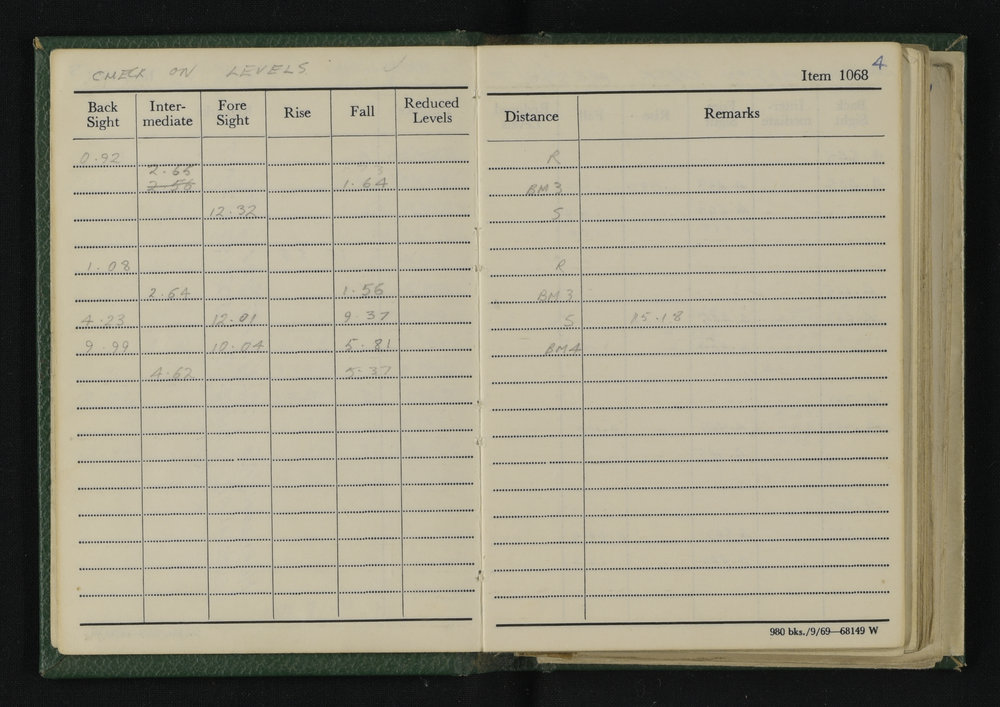 CHECK ON LEVELS
4
Item 1068
Back Sight Inter-mediate Fore Sight Rise Fall Reduced Levels Distance Remarks
0.92 R
2.65
2.56 1.64 BM3
12.32 S
1.08 R
2.64 1.56 BM3
4.23 12.01 9.37 S 15.18
9.99 10.04 5.81 BM4
4.62 5.37
980 bks./9/69—68149 W